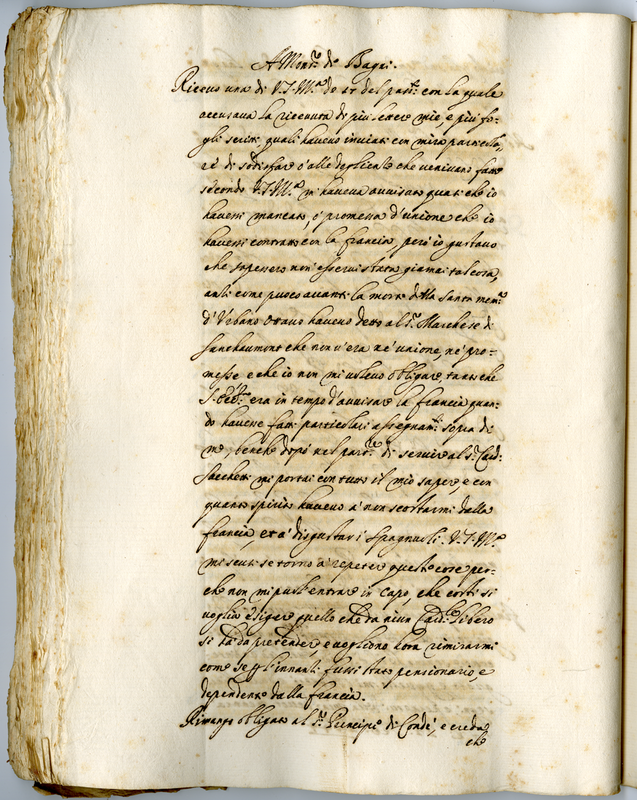 A Mons.re di Bagni.
Ricevo una di V.S.Ill.ma de 17 del pass.to con la quale
accusava la ricevuta di più lettere mie, e più fo-
gli scritti quali havevo inviati con mira particola-
re di sodisfare à alle doglienze che venivano fatte
secondo V.S.Ill.ma m'haveva avvisato quasi che io
havessi mancato, à promessa d'unione che io
havessi contratto con la francia, però io gustavo
che sapessero non esservi stata giamai tal cosa,
anzi come puoco avanti la morte della santa mem.a
d'Urbano Ottavo havevo detto al S.r Marchese di
Sanchaumont che non v'era né unione, né pro-
messe e che io non mi volevo obligare, tanto che
S. Ecc.za era in tempo d'avvisare la francia quan-
do havesse fatti particolari assegnam.ti sopra di
me, benche dopò nel part.re di servire al S.r Card:
Sacchetti mi portai con tutto il mio sapere, e con
quanto spirito havevo à non scostarmi dalla
francia, et à disgustar i Spagnuoli. V.S.Ill.ma
mi scusi se torno à repeter queste cose per-
che non mi puol entrare in capo, che costì si
voglia esiger quello che da niun Card.le libero
si hà da pretender, e vogliono hora rimirarmi
come se p l'innanzi fussi stato pensionario, e
dependente dalla francia.
Rimango obligato al S.r Principe di Condé, e creda
che